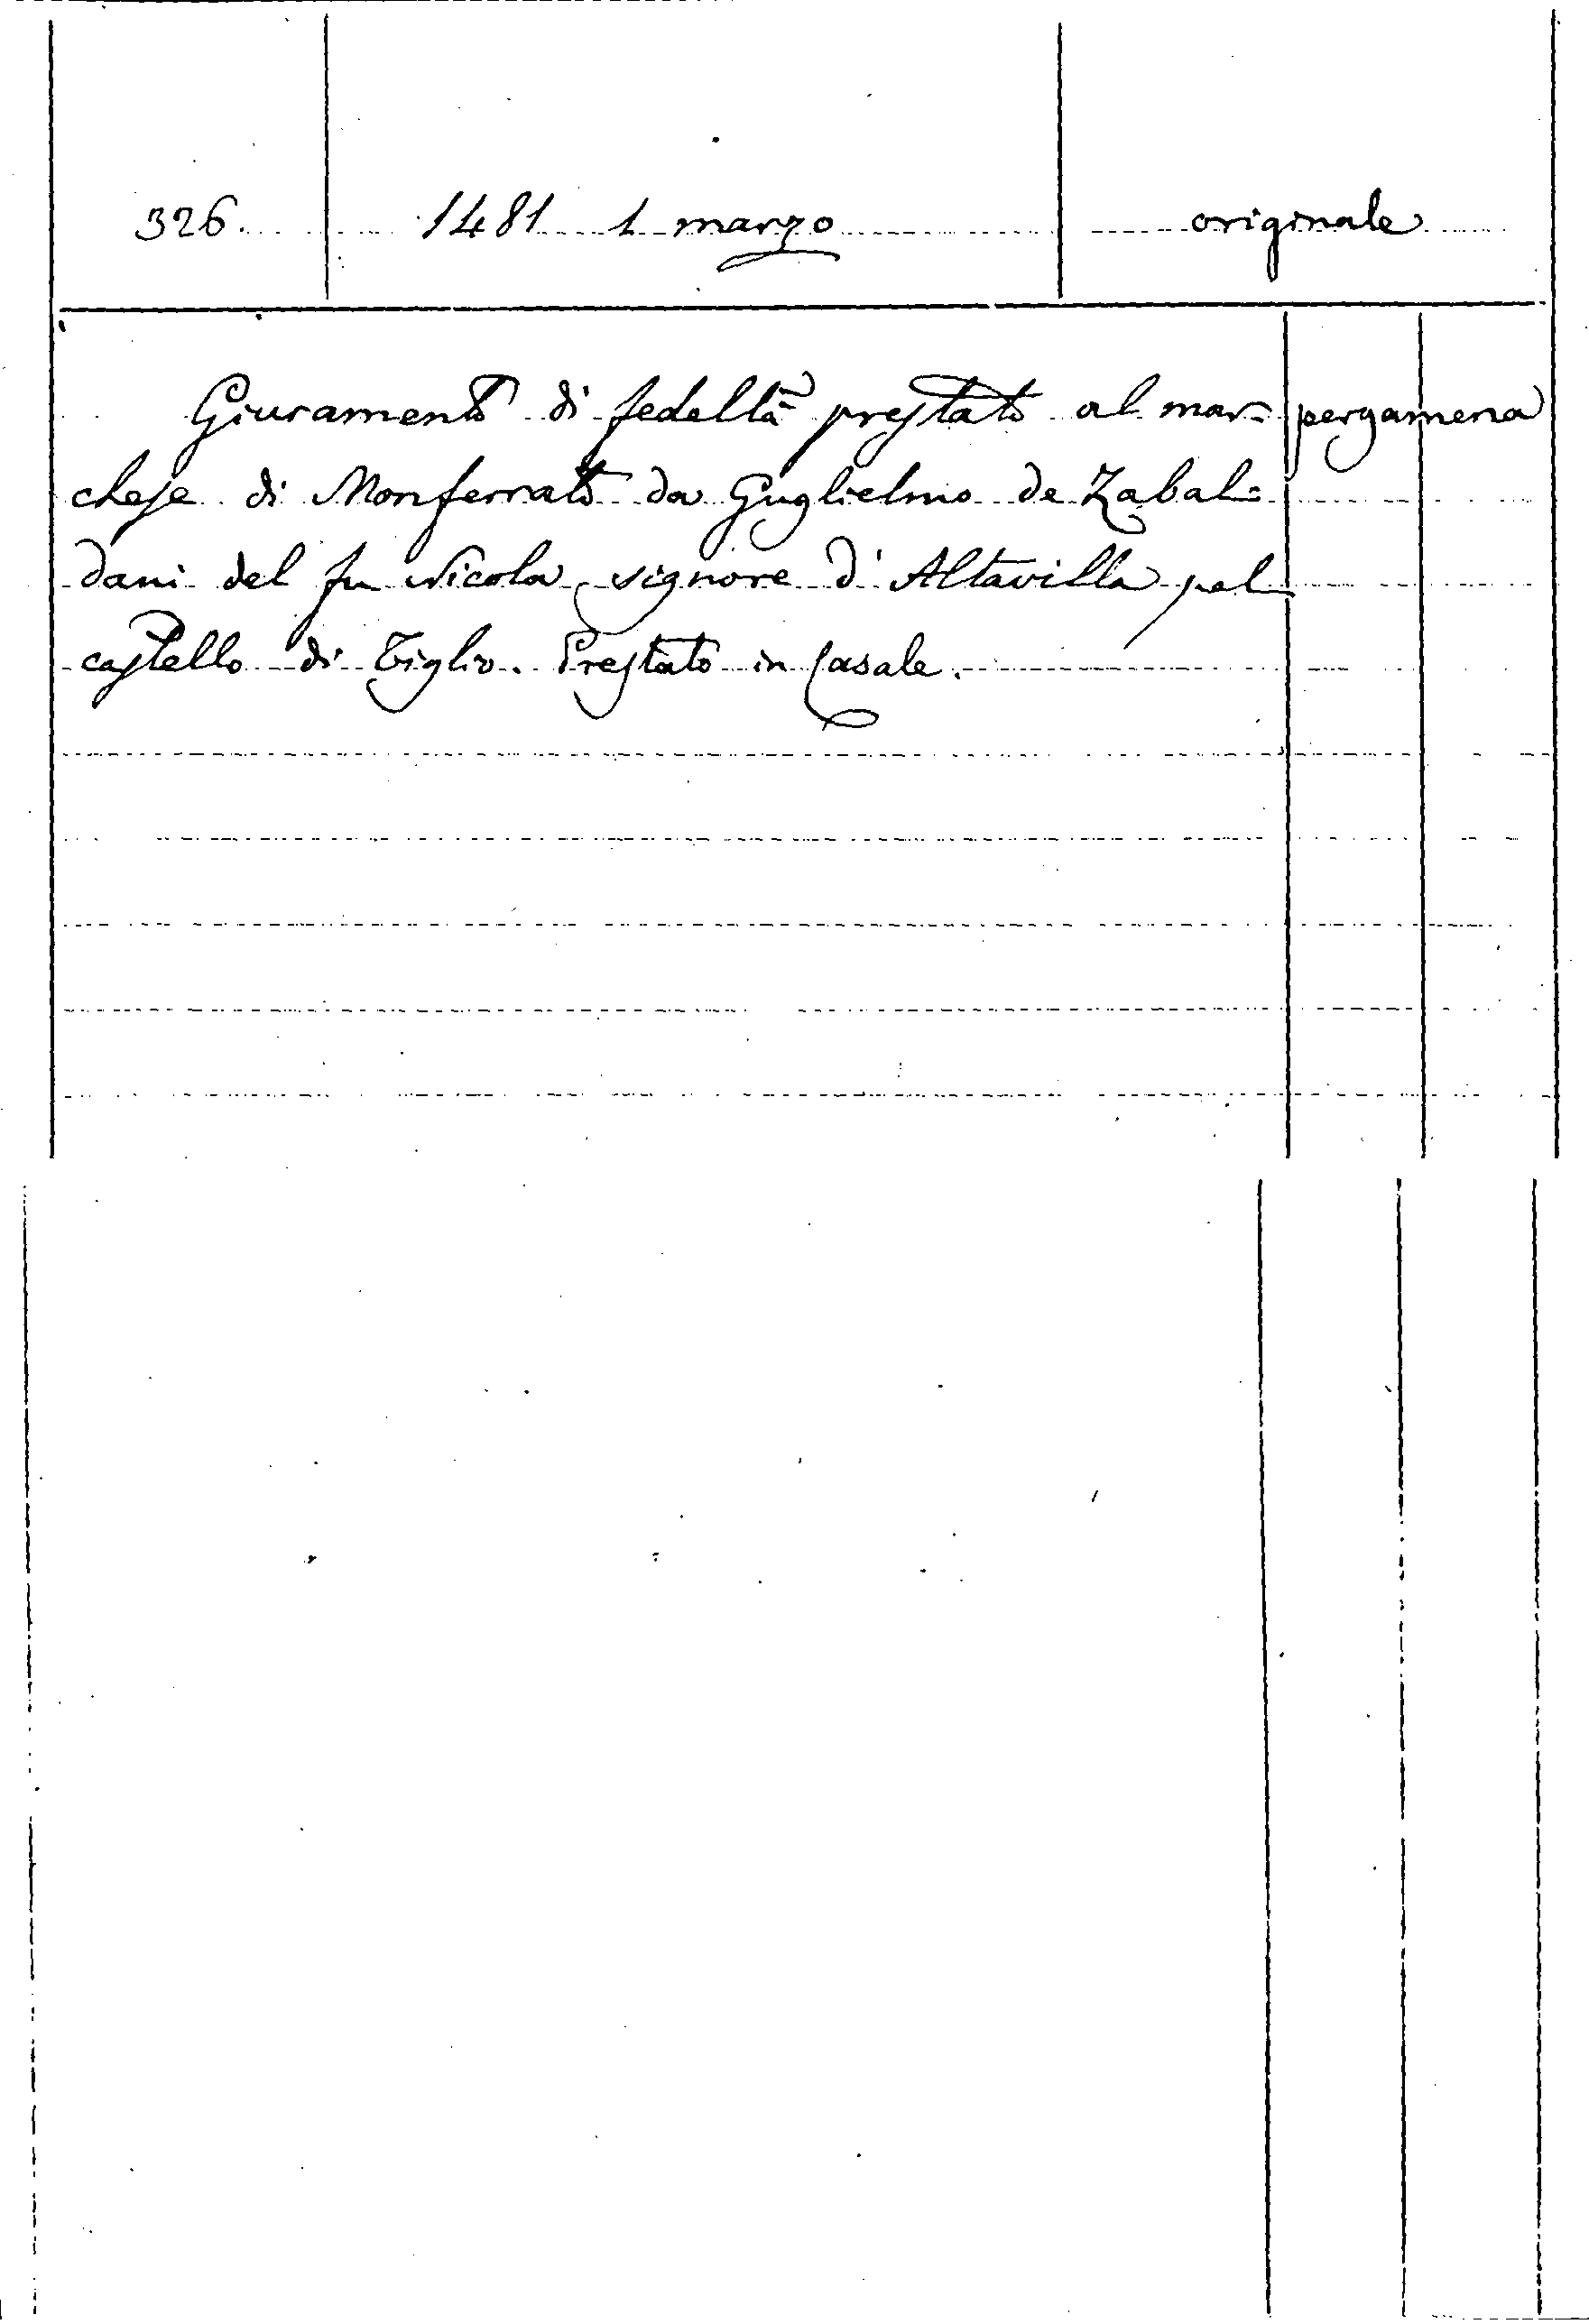 326. 1481 1 marzo originale
Giuramento di fedeltà prestato al mar= pergamena
chese di Monferrato da Guglielmo de Zabal=
dani del fu Nicola, signore d'Altavilla pel
castello di Tiglio. Prestato in Casale.